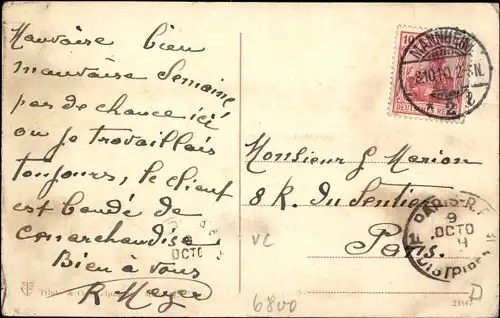 Mauvaise bien
mauvaise Semaine
pas de chance ici
ou je travaillais
toujours, le
est de
Bien à vous
R. Meyer
Monsieur G Marion
8 R. du Sentier
Paris.
10
DEUTSCHES REICH
MANNHEIM
8.10.10. 2-3N.
* 2
9
OCTO
OCTO
VC
6800
23547
D